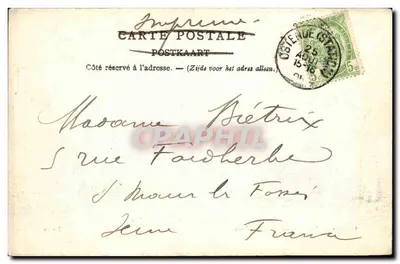 Imprimé
CARTE POSTALE
POSTKAART
Côté réservé à l'adresse. — (Zijde voor het adres alleen.)
OSTENDE (STATION)
25
AOUT
15-16
Madame Biétrix
5 rue Faidherbe
St Maur les Fossés
Seine France